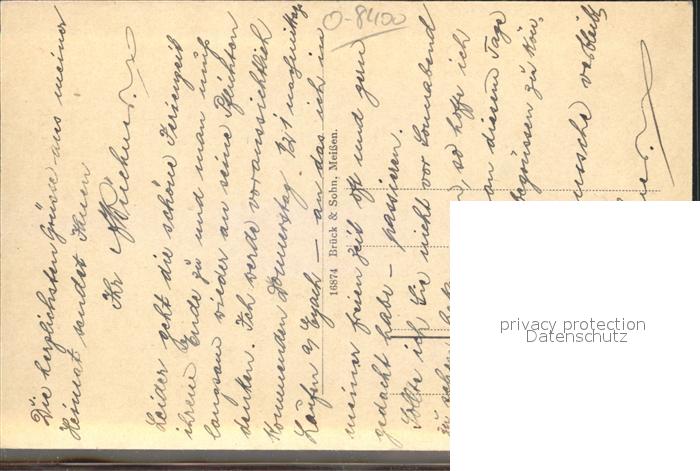 Die herzlichsten Grüsse aus meiner
Heimat sendet Ihnen
Ihr
Leider geht die schöne Ferienzeit
ihrem Ende zu und man muß
langsam wieder an seine Pflichten
denken. Ich werde voraussichtlich
kommenden Donnerstag 12 1 nachmittag
Laufen a/ Eyach — an das ich in
meiner freien Zeit oft und gern
gedacht habe — passieren.
Sollte ich Sie nicht vor Sonnabend
zu sehen, so hoffe ich
an diesem Tage
begrüssen zu kön.
verbleibt
16874 Brück & Sohn, Meißen.
0-8400
privacy protection
Datenschutz